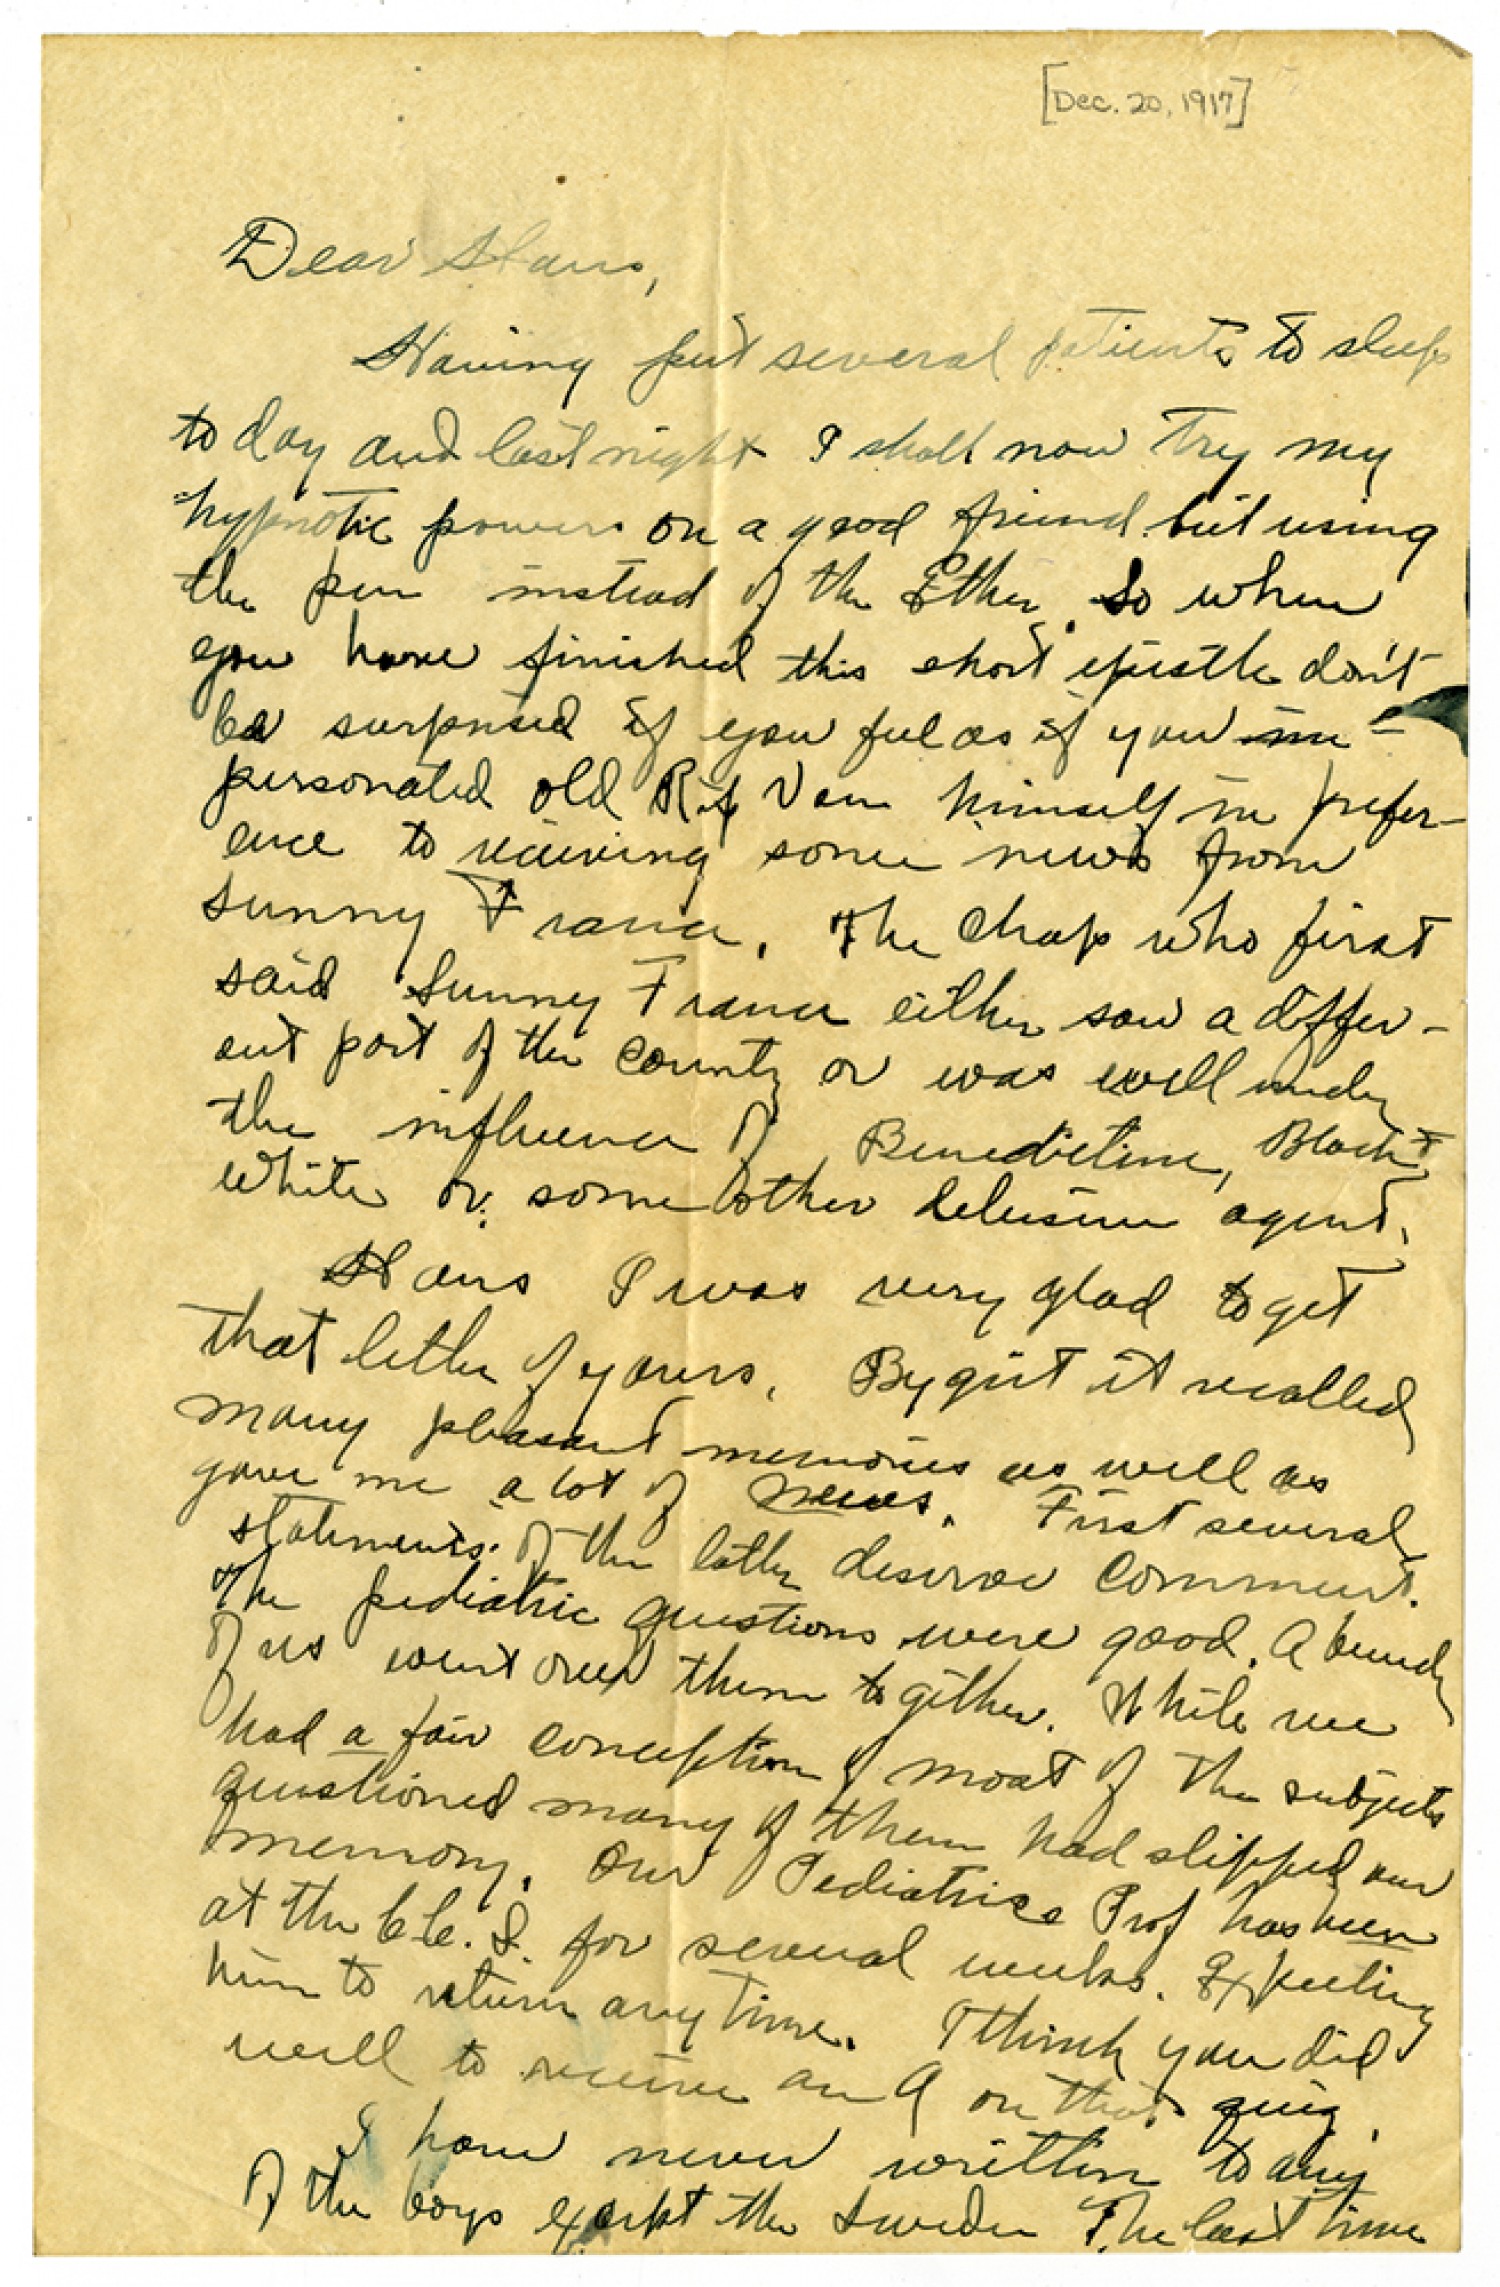 [Dec. 20, 1917]
Dear Hans,
Having put several patients to sleep
to day and last night I shall now try my
hypnotic powers on a good friend but using
the pen instead of the Ether. So when
you have finished this short epistle don't
be surprised if you feel as if you im-
personated old Rip Van himself in prefer-
ence to receiving some news from
sunny France. The chap who first
said Sunny France either saw a differ-
ent part of the country or was well under
the influence of Benedictine, Black &
White or some other delusive agent.
Hans I was very glad to get
that letter of yours. By gist it recalled
many pleasant memories as well as
gave me a lot of news. First several
statements of the latter deserve comment.
The pediatric questions were good. A bunch
of us went over them together. While we
had a fair conception of most of the subjects
questioned many of them had slipped our
memory. Our Pediatrics Prof has been
at the for several weeks. Expecting
him to return any time. I think you did
well to receive an A on that quiz.
I have never written to any
of the boys except the Swede. The last time